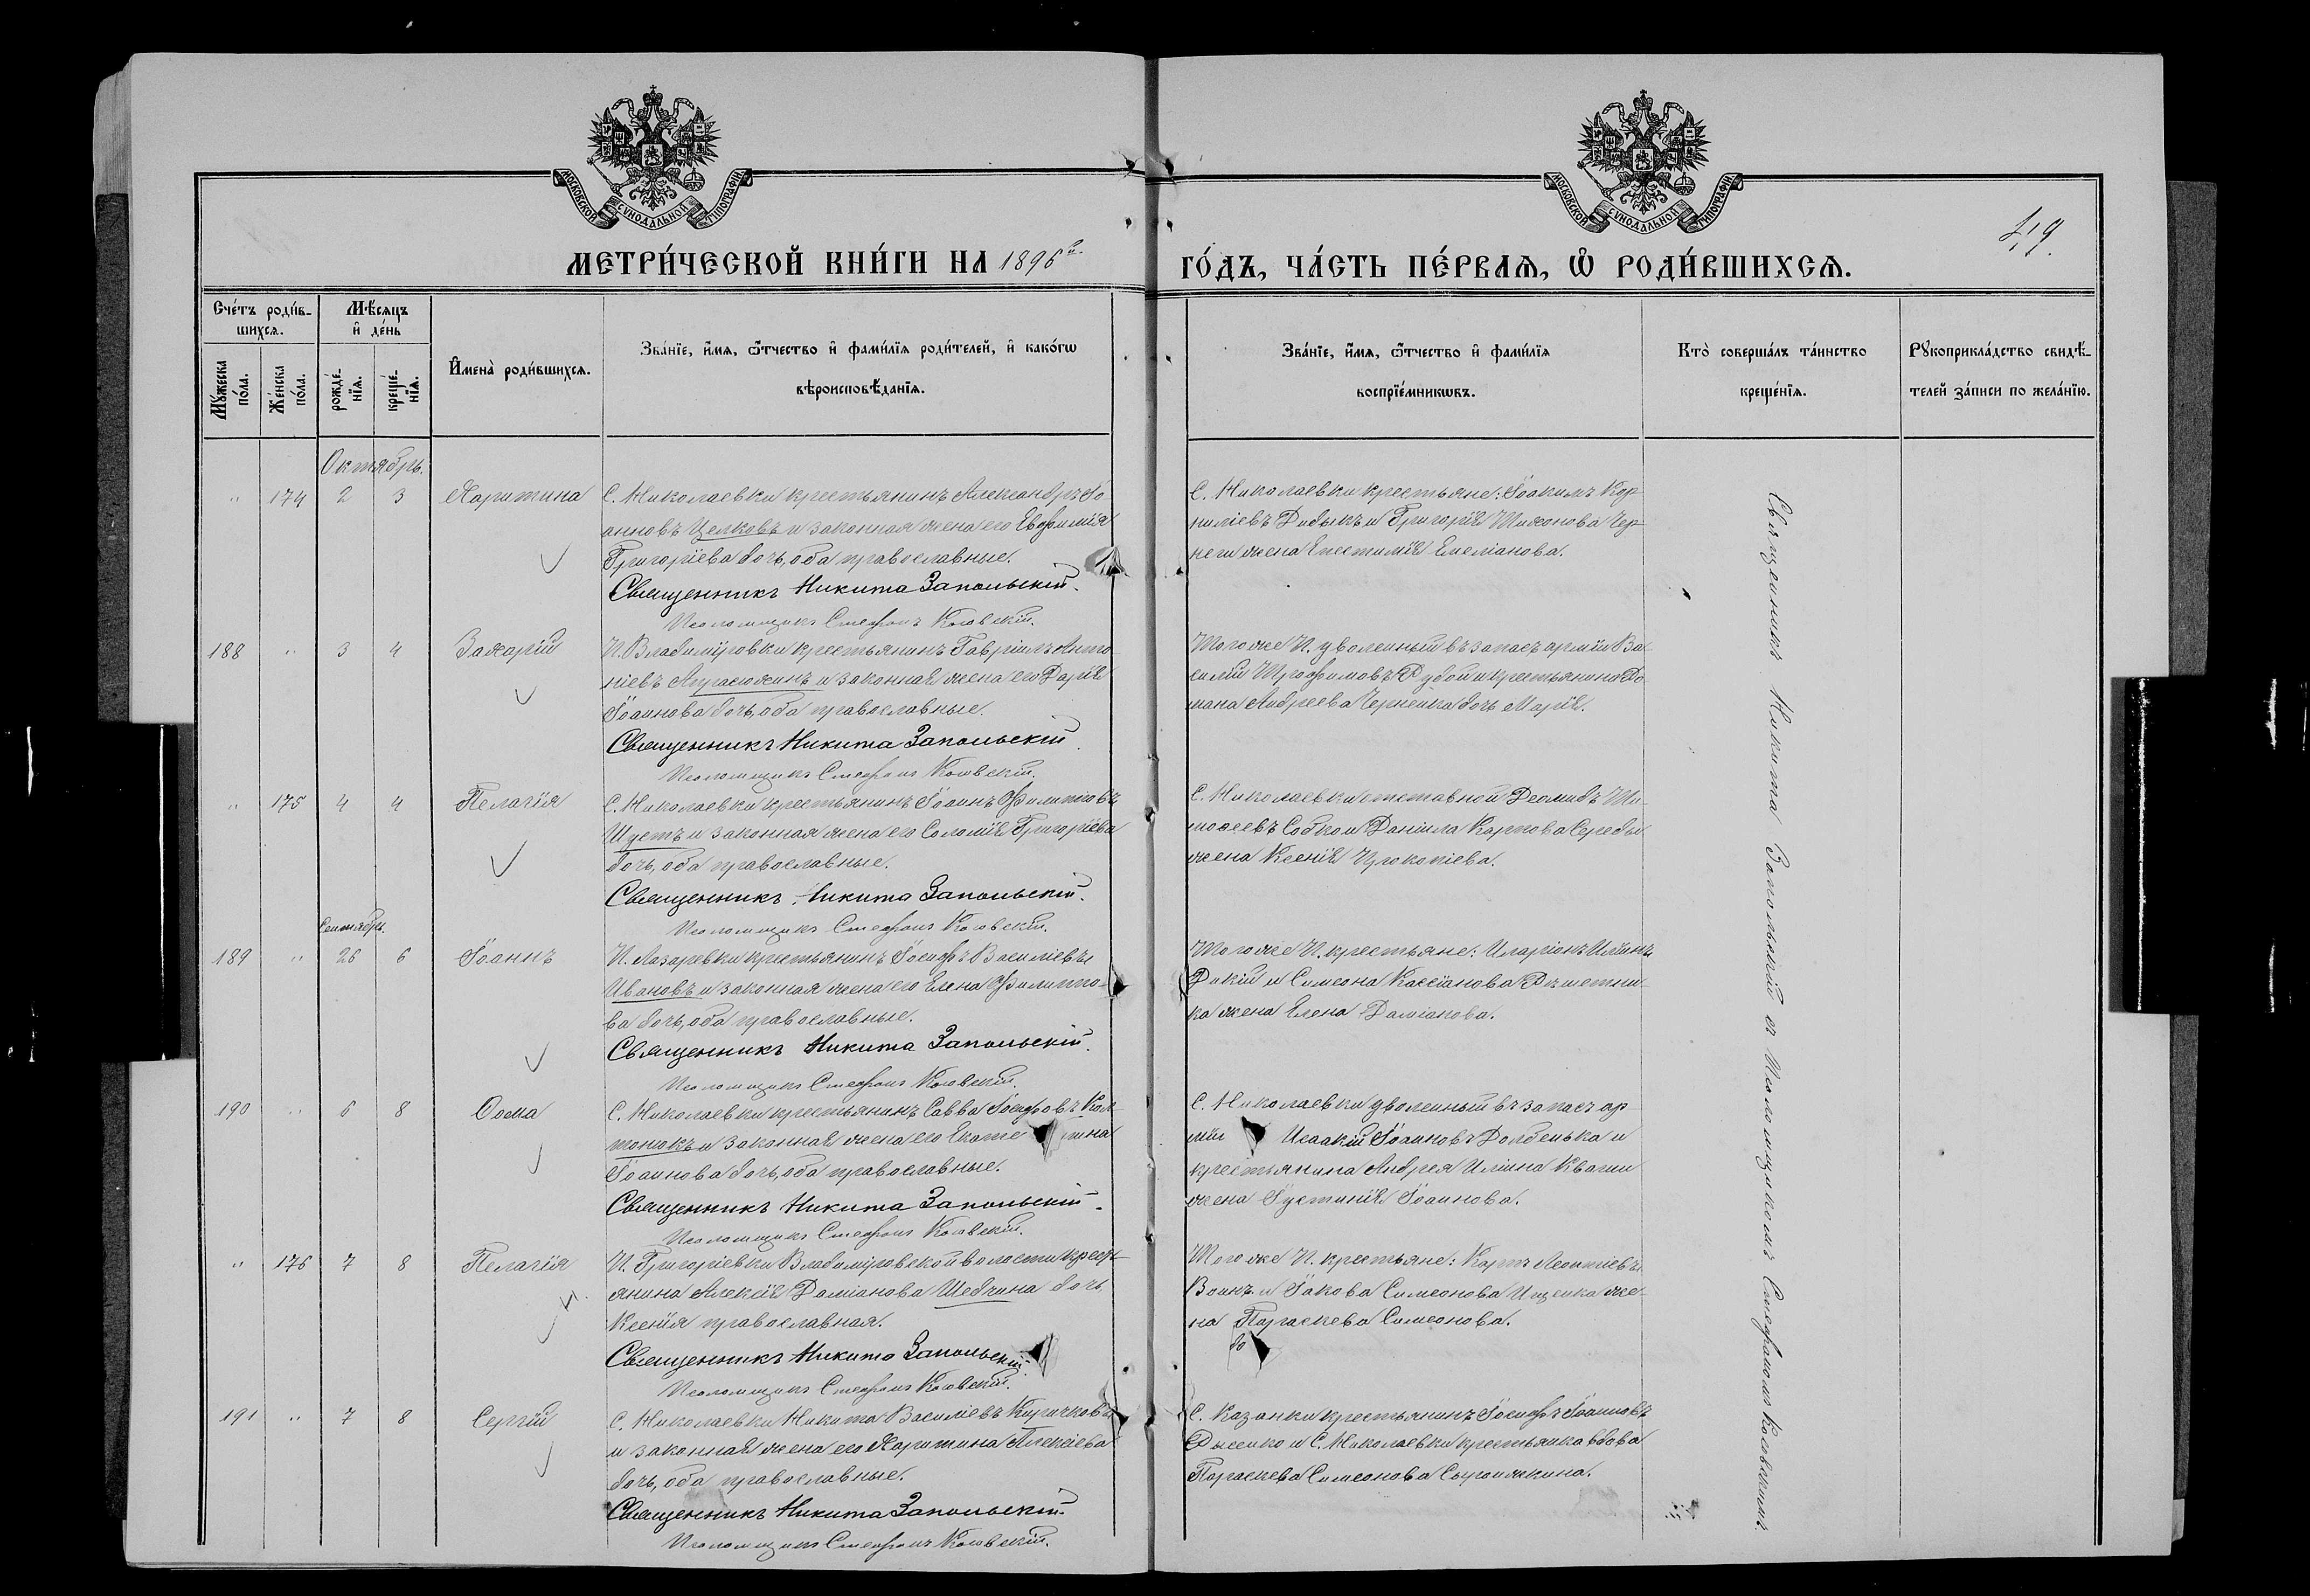 МОСКОВСКОЙ СУНОДАЛЬНОЙ ТИПОГРАФІИ
МОСКОВСКОЙ СУНОДАЛЬНОЙ ТИПОГРАФІИ
МЕТРИ́ЧЕСКОЙ КНИ́ГИ НА 1896й
ГО́ДЪ, ЧА́СТЬ ПЕ́РВАѦ, Ѡ҆ РОДИ́ВШИХСѦ.
Сче́тъ роди́в-
шихсѧ.
Мꙋ́жеска по́ла.
Же́нска по́ла.
Мѣ́сѧцъ
и҆ де́нь
рожде́-нїѧ.
креще́-нїѧ.
И҆мена̀ роди́вшихсѧ.
Зва́нїе, и҆́мѧ, ѻ҆́тчество и҆ фами́лїѧ роди́телей, и҆ како́гѡ
вѣроисповѣ́данїѧ.
Зва́нїе, и҆́мѧ, ѻ҆́тчество и҆ фами́лїѧ
воспрїе́мникѡвъ.
Кто̀ соверша́лъ та́инство
креще́нїѧ.
Рꙋкоприкла́дство свидѣ́-
телей за́писи по жела́нїю.
Октябрь.
" 174 2 3 Харитина
С. Николаевки крестьянинъ Александръ Іо-
анновъ Целковъ и законная жена его Евфимія
Григоріева дочь, оба православные.
Священникъ Никита Запольскій.
Псаломщикъ Стефанъ Косовскій.
С. Николаевки крестьяне: Іоакимъ Кор-
ниліевъ Дидыкъ и Григорія Тихонова Чер-
неги жена Епистимія Емеліанова.
188 " 3 4 Захарій
П. Владиміровки крестьянинъ Гавріилъ Анто-
ніевъ и законная жена его Дарія
Іоаннова дочь, оба православные.
Священникъ Никита Запольскій.
Псаломщикъ Стефанъ Косовскій.
Того же П. уволенный въ запасъ арміи Ва-
силій Трофимовъ Дубой и крестьянина Ро-
мана Андреева Черненка дочь Марія.
" 175 4 4 Пелагія
С. Николаевки крестьянинъ Іоаннъ Филипповъ
Шустъ и законная жена его Соломія Григоріева
дочь, оба православные.
Священникъ Никита Запольскій.
Псаломщикъ Стефанъ Косовскій.
С. Николаевки отставной Деомидъ Ти-
моѳеевъ Собко и Даніила Карпова Середы
жена Ксенія Прокопіева.
Сентябрь.
189 " 26 6 Іоаннъ
П. Лазаревки крестьянинъ Іосифъ Василіевъ
Ивановъ и законная жена его Елена Филиппо-
ва дочь, оба православные.
Священникъ Никита Запольскій.
Псаломщикъ Стефанъ Косовскій.
Того же П. крестьяне: Иларіонъ Иліинъ
Дикій и Симеона Кассіанова Решетни-
ка жена Елена Даміанова.
190 " 6 8 Ѳома
С. Николаевки крестьянинъ Савва Іосифовъ Кол-
тонюкъ и законная жена его Екате рина
Іоаннова дочь, оба православные.
Священникъ Никита Запольскій.
Псаломщикъ Стефанъ Косовскій.
С. Николаевки уволенный въ запасъ ар-
міи Исаакій Іоанновъ Долбенька и
крестьянина Андрея Иліина Кваши
жена Іустинія Іоаннова.
" 176 7 8 Пелагія
П. Григоріевки Владиміровской волости кресть-
янина Алексія Даміанова Шедкина дочь
Ксенія православная.
Священникъ Никита Запольскій.
Псаломщикъ Стефанъ Косовскій.
Того же П. крестьяне: Карпъ Леонтіевъ
Воинъ и Іакова Симеонова Ищенка же-
на Параскева Симеонова.
191 " 7 8 Сергій
С. Николаевки Никита Василіевъ Киричковъ
и законная жена его Харитина Алексіева
дочь, оба православные.
Священникъ Никита Запольскій.
Псаломщикъ Стефанъ Косовскій.
С. Казанки крестьянинъ Іосифъ Іоанновъ
Рысенко и С. Николаевки крестьянка вдова
Параскева Симеонова
Священникъ Никита Запольскій съ Псаломщикомъ Стефаномъ Косовскимъ.